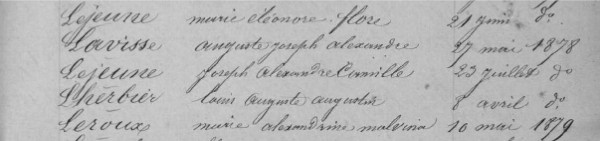 Lejeune marie éléonore flore 21 juin do
Lavisse auguste joseph alexandre 27 mai 1878
Lejeune joseph alexandre Camille 23 juillet do
Lherbier louis auguste augustin 8 avril do
Leroux marie alexandrine malvina 10 mai 1879